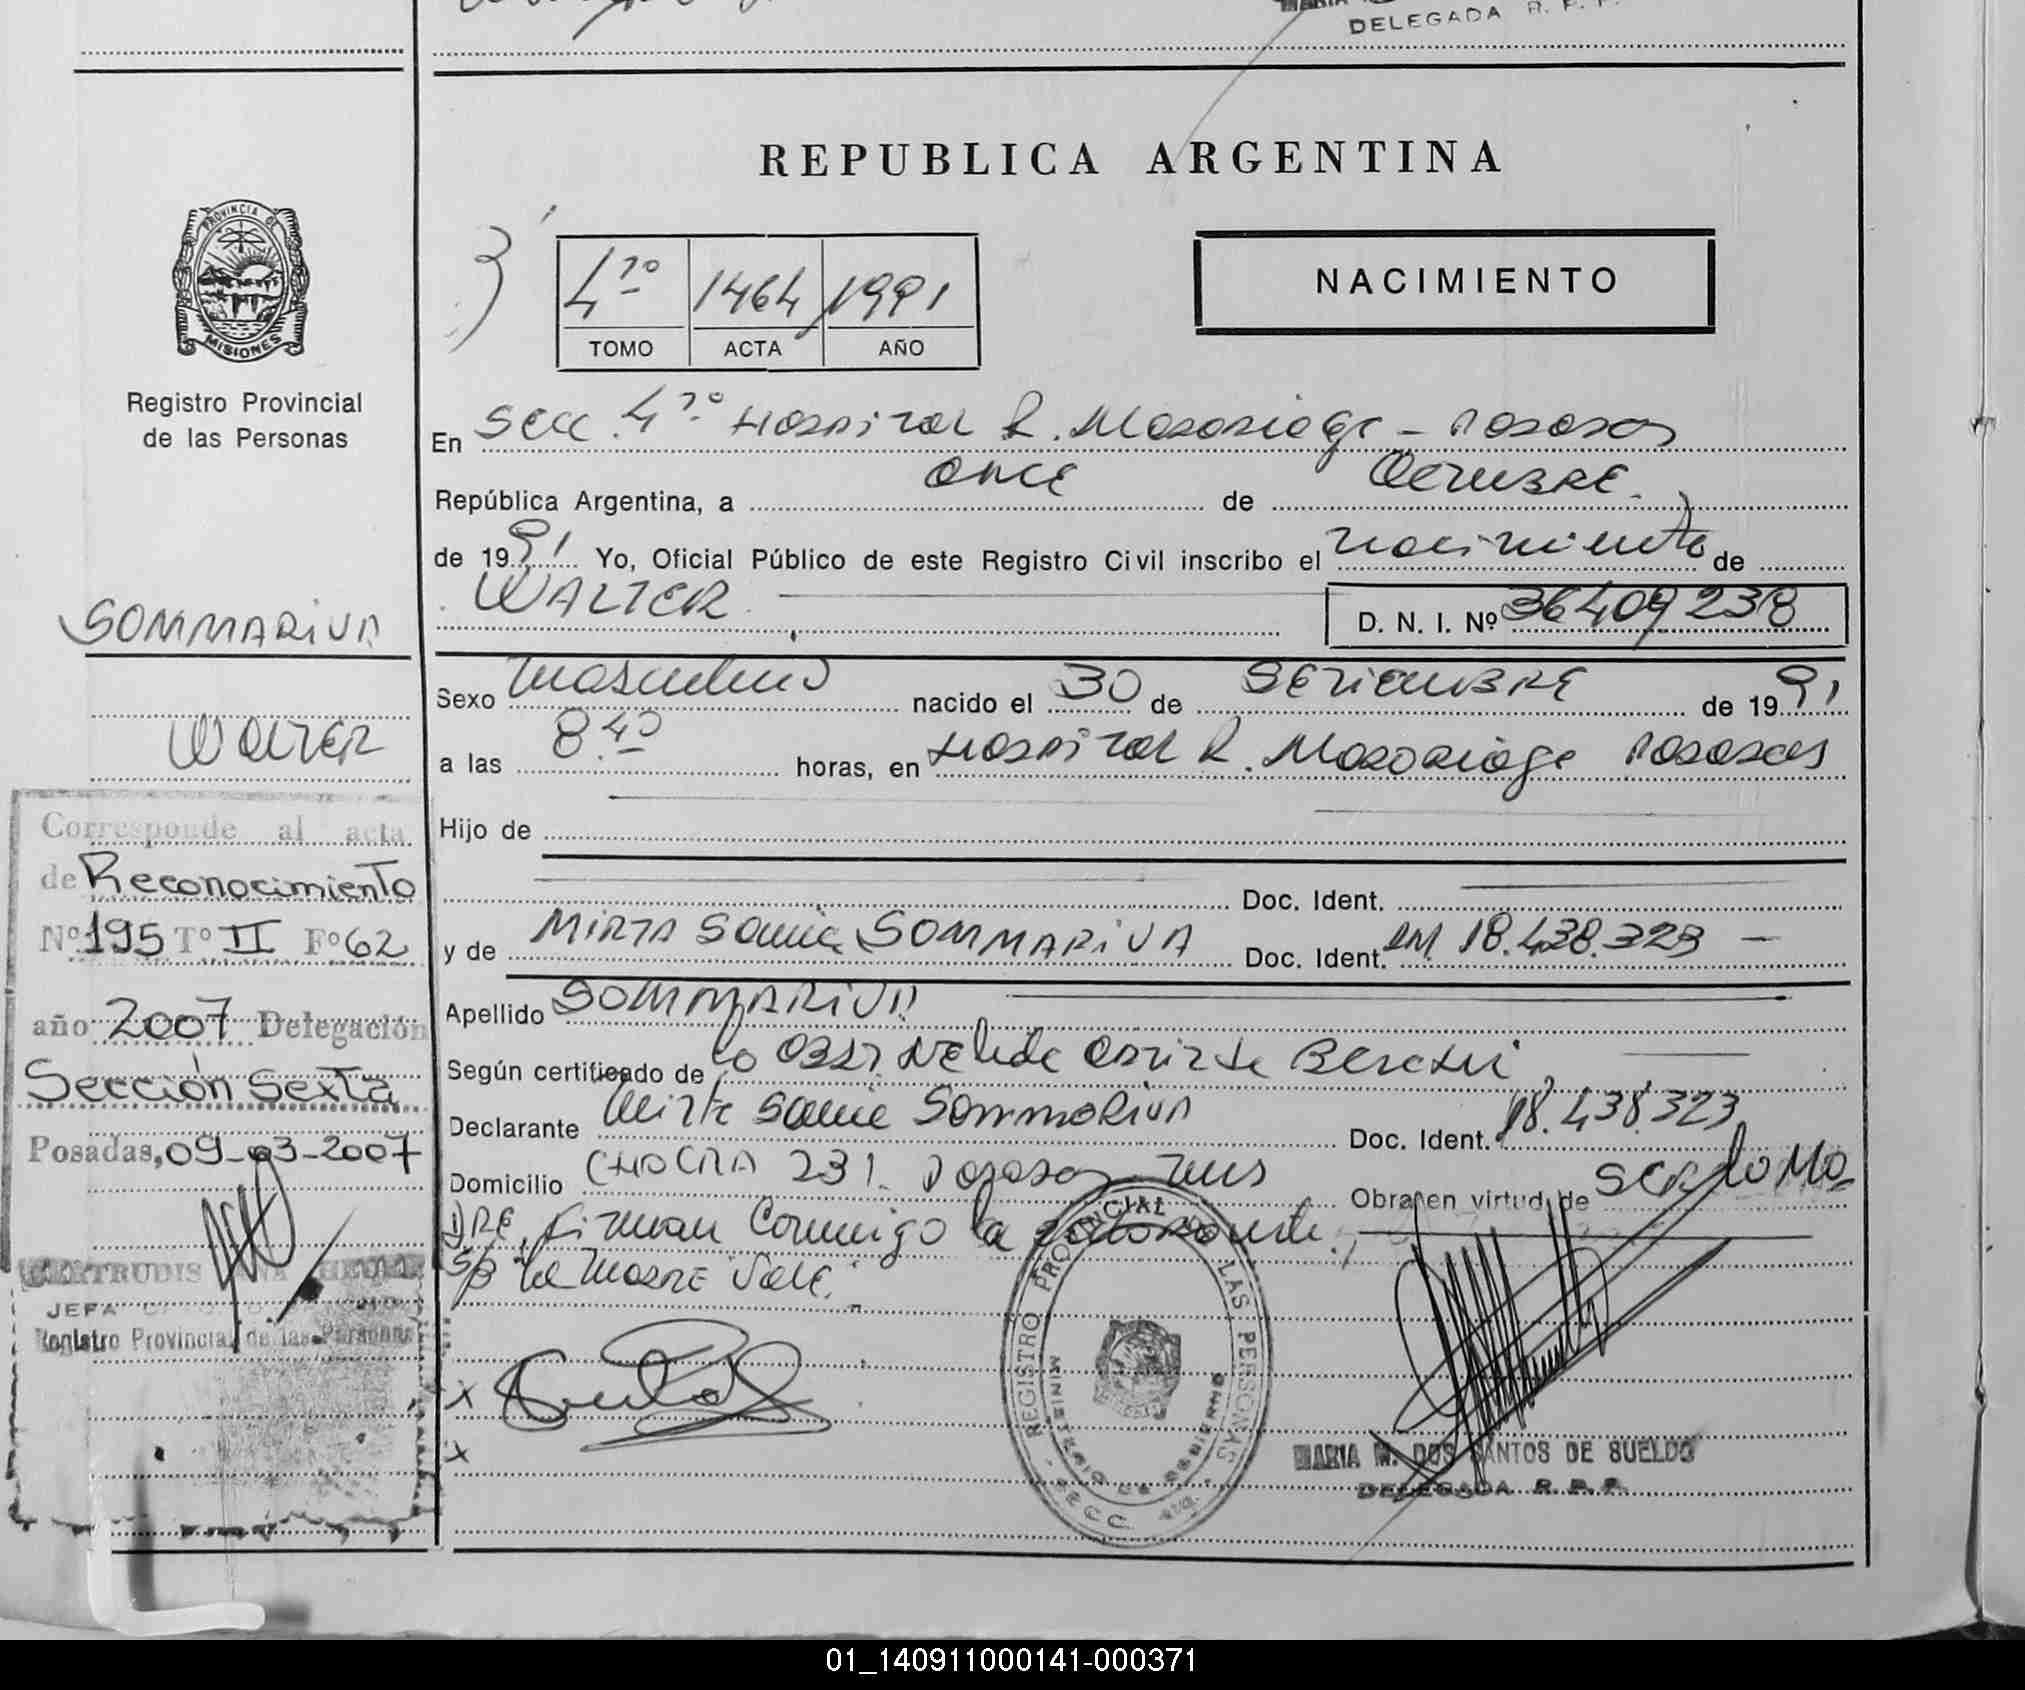 DELEGADA R. P. P.
REPUBLICA ARGENTINA
PROVINCIA DE
MISIONES
Registro Provincial
de las Personas
4to 1464 1991
TOMO ACTA AÑO
NACIMIENTO
En Secc. 4ta Hospital R. Madariaga - Posadas
República Argentina, a once de Octubre.
de 1991 Yo, Oficial Público de este Registro Civil inscribo el nacimiento de
WALTER D. N. I. Nº 36409238
SOMMARIVA
Walter
Sexo masculino nacido el 30 de Setiembre de 1991
a las 8.40 horas, en Hospital R. Madariaga Posadas
Hijo de
Doc. Ident.
y de MIRTA Sonia SOMMARIVA Doc. Ident. DNI 18.438.323
Apellido SOMMARIVA
Según certificado de la Obst. Nelida Beretti
Declarante Mirta Sonia Sommariva Doc. Ident. 18.438.323
Domicilio CHACRA 231. Posadas Mns Obra en virtud de Ser la Ma-
DRE. Firman Conmigo la
S/B "la Madre Vale."
x
x
REGISTRO PROVINCIAL DE LAS PERSONAS
MINISTERIO DE GOBIERNO
SECC. 4ta.
MARIA M. DOS SANTOS DE SUELDO
DELEGADA R. P. P.
Corresponde al acta
de Reconocimiento
Nº 195 Tº II Fº 62
año 2007 Delegación
Sección Sexta
Posadas, 09-03-2007
GERTRUDIS
JEFA
Registro Provincial de las Personas
01_140911000141-000371